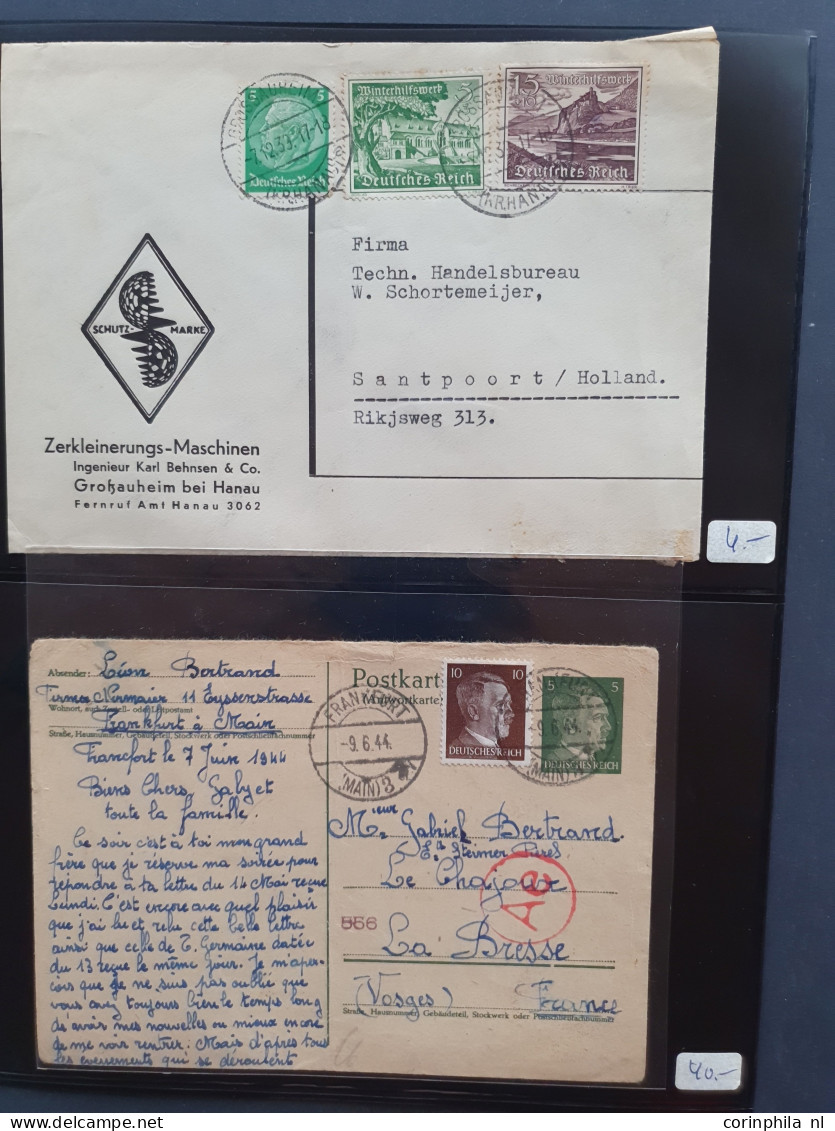 5 5
Deutsches Reich
7.12.39.17-18
(KR.HANAU)
Winterhilfswerk
Deutsches Reich
15
Winterhilfswerk
Deutsches Reich
(KR.HANAU)
Firma
Techn. Handelsbureau
W. Schortemeijer,
Santpoort/Holland.
Rikjsweg 313.
SCHUTZ- MARKE
Zerkleinerungs-Maschinen
Ingenieur Karl Behnsen & Co.
Großauheim bei Hanau
Fernruf Amt Hanau 3062
4.-
Absender: Léon Bertrand
Firma 11 Eyssenstrasse
Wohnort, auch Zustell- oder Leitpostamt
Frankfurt à Main
Straße, Hausnummer, Gebäudeteil, Stockwerk oder Postschließfachnummer
Francfort le 7 Juin 1944
Biens Chers, Gaby et
toute la famille.
Ce soir c'est à toi mon grand
frère que je réserve ma soirée pour
répondre à ta lettre du 14 Mai reçue
Lundi. C'est encore avec quel plaisir
que j'ai lu et relu cette belle lettre
ainsi que celle de T. Germaine datée
du 13 reçue le même jour. Je m'aper-
çois que je ne suis pas oublié que
vous avez toujours bien le temps long
d'avoir mes nouvelles ou mieux encore
de me voir rentrer. Mais d'après tous
les évènements qui se déroulent
Postkarte
Antwortkarte
FRANKFURT
-9.6.44.
(MAIN) 3
10 10
DEUTSCHES REICH
5 5
DEUTSCHES REICH
-9.6.44.
(MAIN)
Mr. Gabriel Bertrand
Le Chajoux
Ae
556
La Bresse
(Vosges) France
Straße, Hausnummer, Gebäudeteil, Stockwerk oder Postschließfachnummer
40.-
corinphila nl corinphila nl